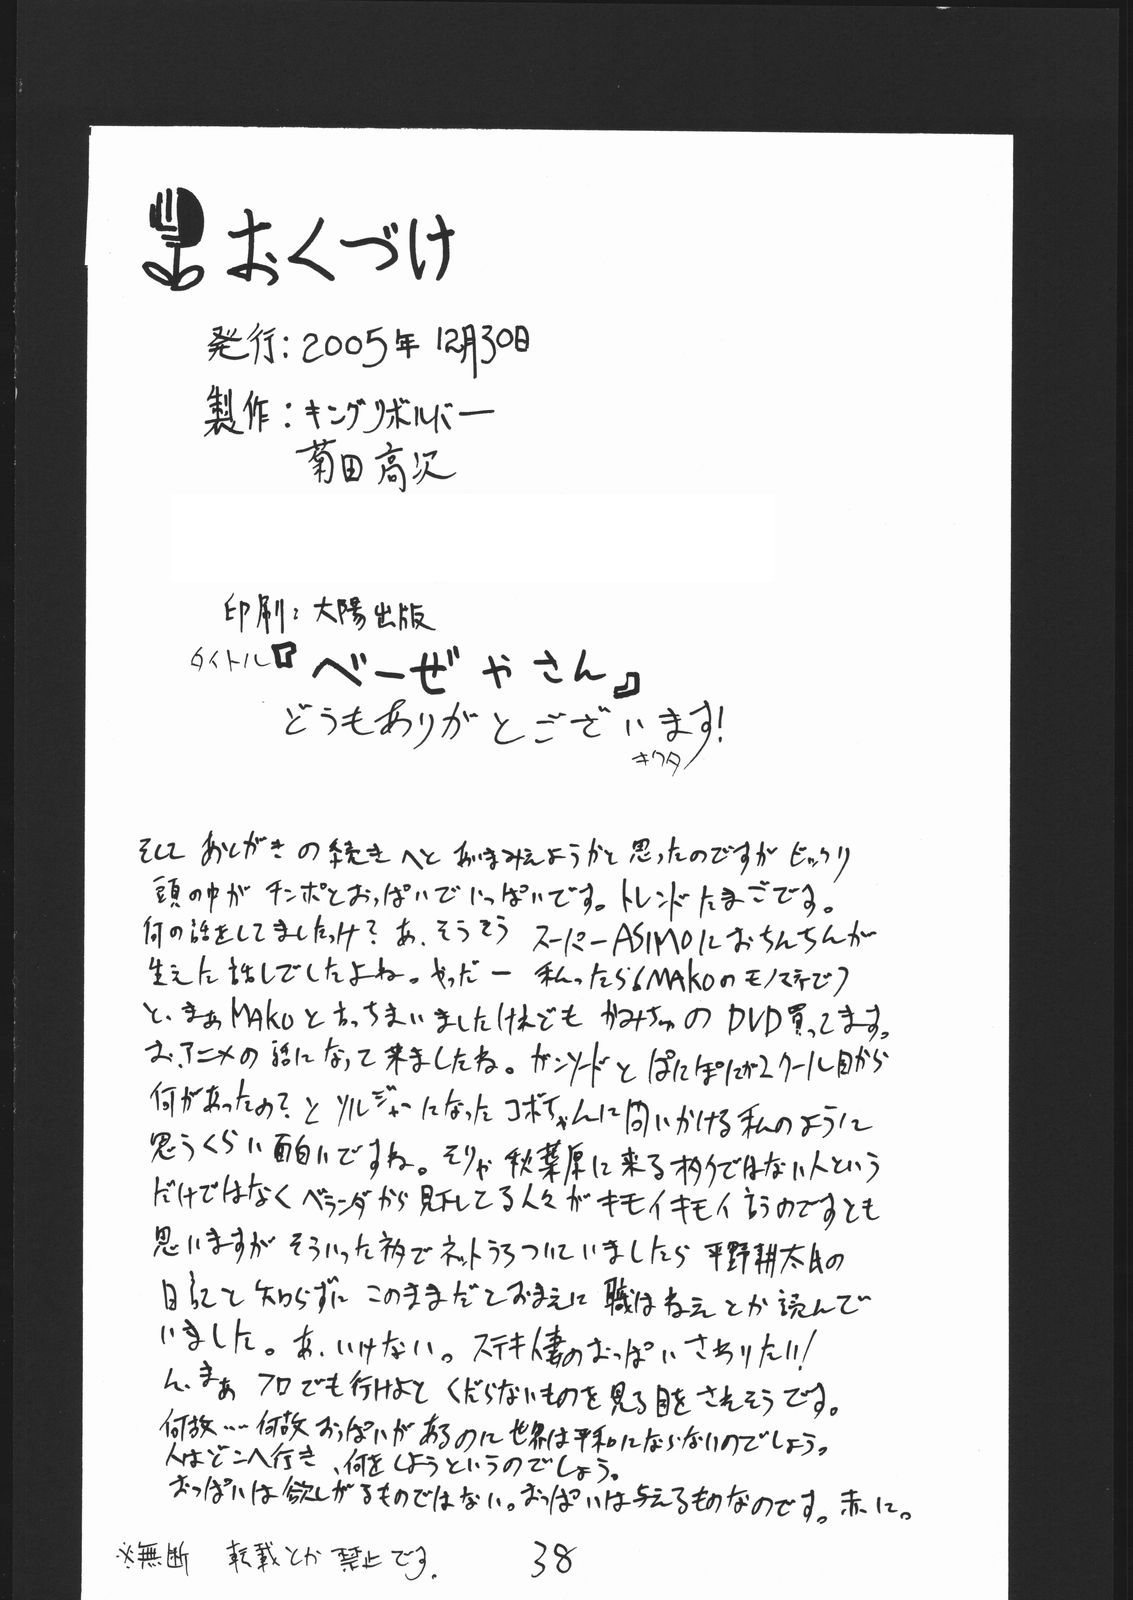 おくづけ
発行：2005年12月30日
製作：キングリボルバー
菊田高次
印刷：大陽出版
タイトル『べーぜやさん』
どうもありがとございます！
キクタ
そして あとがきの続きへと あいまみえようかと思ったのですが ビックリ
頭の中が チンポとおっぱいでいっぱいです。トレンドたまごです。
何の話をしてましたっけ？あ、そうそう スーパーASIMOにおちんちんが
生えた話しでしたよね。やっだー 私ったら MAKOのモノマネでつ
と、まぁMAKOと言っちまいましたけれども かみちゅのDVD買ってます。
お、アニメの話になって来ましたね。ガンソードとぱにぽにが2クール目から
何があったの？とソルジャーになったコボちゃんに問いかける私のように
思うくらい面白いですね。そりゃ秋葉原に来るオタクではない人という
だけではなくベランダから見下してる人々がキモイキモイ言うのですとも
思いますが そういった中でネットうろついていましたら 平野耕太氏の
日記と知らずに このままだとおまえに 職はねえ とか読んで
いました。あ、いけない。ステキ人妻のおっぱいさわりたい！
ん、まぁ フロでも行けよと くだらないものを見る目をされそうです。
何故…何故おっぱいがあるのに世界は平和にならないのでしょう。
人はどこへ行き、何をしようというのでしょう。
おっぱいは欲しがるものではない。おっぱいは与えるものなのです。赤に。
※無断 転載とか禁止です。
38